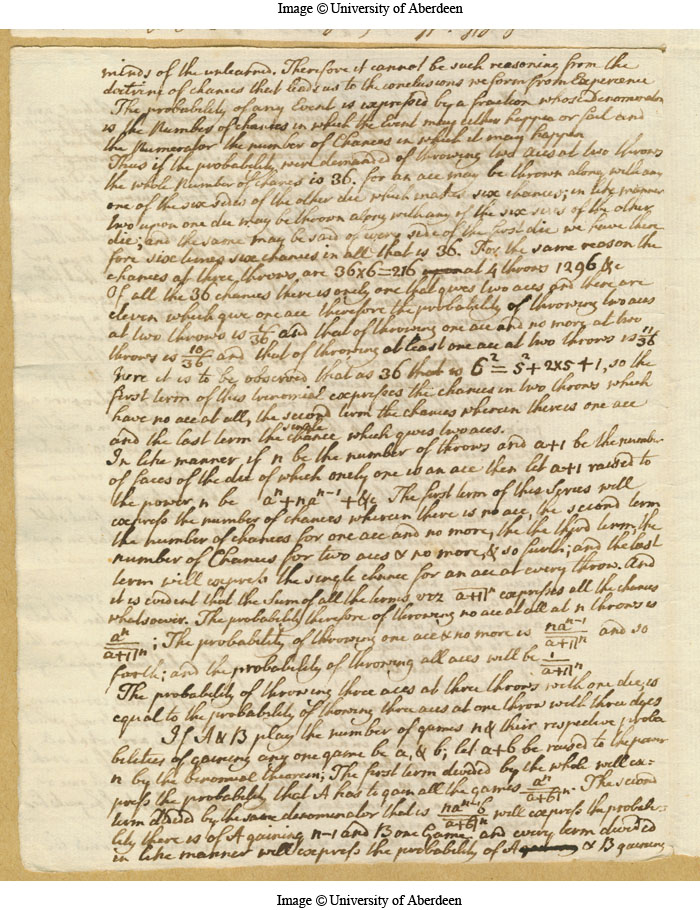 Image © University of Aberdeen
minds of the unlearned. Therefore it cannot be such reasoning from the
doctrine of chances that leads us to the conclusions we form from Experience
The probability of any Event is expressed by a fraction whose Denominator
is the Number of chances in which the Event may either happen or fail and
the Numerator the number of Chances in which it may happen
Thus if the probability were demanded of throwing two aces at two throws
the whole Number of Chances is 36. for an ace may be thrown along with any
one of the six sides of the other die which makes six chances; in like manner
two upon one die may be thrown along with any of the six sides of the other
die; and the same may be said of every side of the first die we have there
fore six times six chances in all that is 36. For the same reason the
chances at three throws are 36x6=216 at 4 throws 1296 &c
Of all the 36 chances there is onely one that gives two aces and there are
eleven which give one ace therefore the probability of throwing two aces
at two throws is 1/36 and that of throwing one ace and no more at two
throws is 10/36 and that of throwing at least one ace at two throws is 11/36
Here it is to be observed that as 36 that is 6²=5²+2x5+1, so the
first term of this trinomial expresses the chances in two throws which
have no ace at all, the second term the chances wherein there is one ace
and the last term the single chance which gives two aces.
In like manner if n be the number of throws and a+1 be the number
of faces of the die of which onely one is an ace then let a+1 raised to
the power n be aⁿ+naⁿ⁻¹+&c The first term of this Series will
express the number of chances wherein there is no ace, the second term
the number of chances for one ace and no more, the the third term, the
number of Chances for two aces & no more, & so furth; and the last
term will express the single chance for an ace at every throw. And
it is evident that the Sum of all the terms viz a+1|ⁿ expresses all the chances
whatsoever. The probability therefore of throwing no ace at all at n throws is
aⁿ/a+1|ⁿ; The probability of throwing one ace & no more is naⁿ⁻¹/a+1|ⁿ and so
forth; and the probability of throwing all aces will be 1/a+1|ⁿ
The probability of throwing three aces at three throws with one die, is
equal to the probability of throwing three aces at one throw with three dyes
If A & B play the number of games n & their respective proba
bilities of gaining any one game be a, & b; let a+b be raised to the power
n by the binomial theorem; The first term divided by the whole will ex-
press the probability that A has to gain all the games aⁿ/a+b|ⁿ. The second
term divided by the same denominator that is naⁿ⁻¹b/a+b|ⁿ will express the probabi-
lity there is of A gaining n-1 and B one Game and every term divided
in like manner will express the probability of A & B gaining
Image © University of Aberdeen